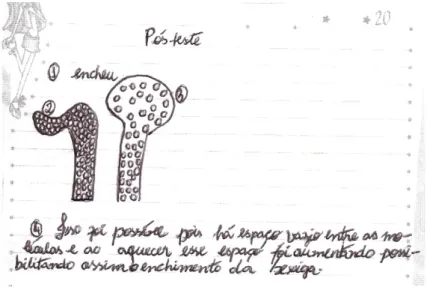 20
Pós-teste
① encheu
②
③
④ Isso foi possível pois há espaço vazio entre as mo-
léculas e ao aquecer esse espaço foi aumentando possi-
bilitando assim o enchimento da bexiga.